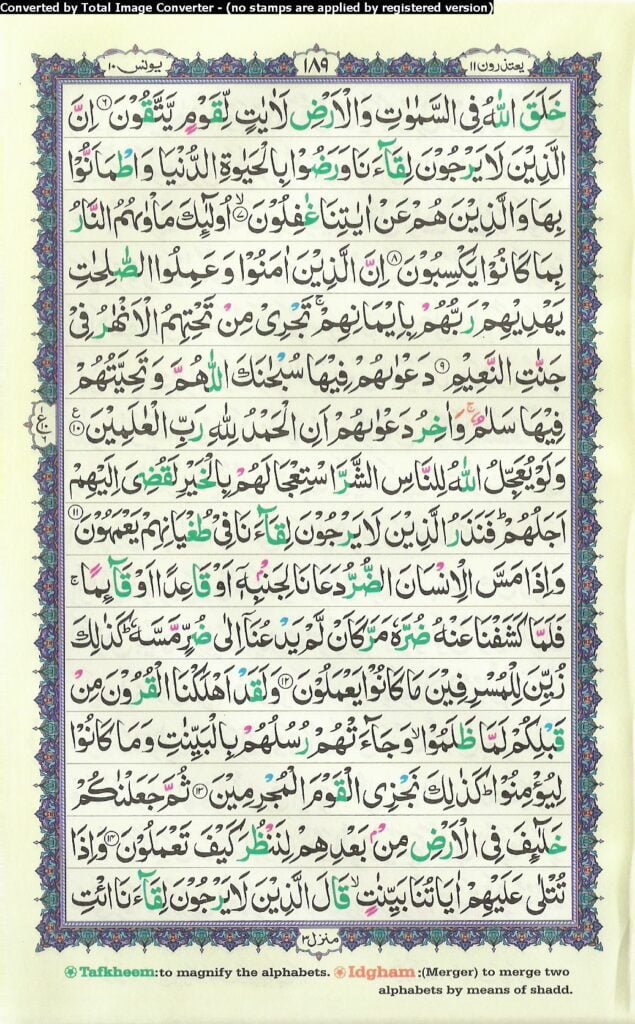 Converted by Total Image Converter - (no stamps are applied by registered version)
يعتذرون ١١
١٨٩
يونس ١٠
خَلَقَ اللّٰهُ فِى السَّمٰوٰتِ وَالۡاَرۡضِ لَاٰيٰتٍ لِّقَوۡمٍ يَّتَّقُوۡنَ ۶ اِنَّ
الَّذِيۡنَ لَا يَرۡجُوۡنَ لِقَآءَنَا وَرَضُوۡا بِالۡحَيٰوةِ الدُّنۡيَا وَاطۡمَاَنُّوۡا
بِهَا وَالَّذِيۡنَ هُمۡ عَنۡ اٰيٰتِنَا غٰفِلُوۡنَ ۙ۷ اُولٰٓئِكَ مَاۡوٰٮهُمُ النَّارُ
بِمَا كَانُوۡا يَكۡسِبُوۡنَ ۸ اِنَّ الَّذِيۡنَ اٰمَنُوۡا وَعَمِلُوا الصّٰلِحٰتِ
يَهۡدِيۡهِمۡ رَبُّهُمۡ بِاِيۡمَانِهِمۡ‌ۚ تَجۡرِىۡ مِنۡ تَحۡتِهِمُ الۡاَنۡهٰرُ فِىۡ
جَنّٰتِ النَّعِيۡمِ ۹ دَعۡوٰٮهُمۡ فِيۡهَا سُبۡحٰنَكَ اللّٰهُمَّ وَ تَحِيَّتُهُمۡ
فِيۡهَا سَلٰمٌ‌ۚ وَاٰخِرُ دَعۡوٰٮهُمۡ اَنِ الۡحَمۡدُ لِلّٰهِ رَبِّ الۡعٰلَمِيۡنَ ۱۰
وَلَوۡ يُعَجِّلُ اللّٰهُ لِلنَّاسِ الشَّرَّ اسۡتِعۡجَالَهُمۡ بِالۡخَيۡرِ لَقُضِىَ اِلَيۡهِمۡ
اَجَلُهُمۡ‌ؕ فَنَذَرُ الَّذِيۡنَ لَا يَرۡجُوۡنَ لِقَآءَنَا فِىۡ طُغۡيَانِهِمۡ يَعۡمَهُوۡنَ ۱۱
وَاِذَا مَسَّ الۡاِنۡسَانَ الضُّرُّ دَعَانَا لِجَنۡۢبِهٖۤ اَوۡ قَاعِدًا اَوۡ قَآٮِٕمًا‌ۚ
فَلَمَّا كَشَفۡنَا عَنۡهُ ضُرَّهٗ مَرَّ كَاَنۡ لَّمۡ يَدۡعُنَاۤ اِلٰى ضُرٍّ مَّسَّهٗ‌ؕ كَذٰلِكَ
زُيِّنَ لِلۡمُسۡرِفِيۡنَ مَا كَانُوۡا يَعۡمَلُوۡنَ ۱۲ وَلَقَدۡ اَهۡلَكۡنَا الۡقُرُوۡنَ مِنۡ
قَبۡلِكُمۡ لَمَّا ظَلَمُوۡا‌ۙ وَجَآءَتۡهُمۡ رُسُلُهُمۡ بِالۡبَيِّنٰتِ وَمَا كَانُوۡا
لِيُؤۡمِنُوۡا‌ؕ كَذٰلِكَ نَجۡزِى الۡقَوۡمَ الۡمُجۡرِمِيۡنَ ۱۳ ثُمَّ جَعَلۡنٰكُمۡ
خَلٰٓٮِٕفَ فِى الۡاَرۡضِ مِنۡۢ بَعۡدِهِمۡ لِنَـنۡظُرَ كَيۡفَ تَعۡمَلُوۡنَ ۱۴ وَاِذَا
تُتۡلٰى عَلَيۡهِمۡ اٰيَاتُنَا بَيِّنٰتٍ‌ۙ قَالَ الَّذِيۡنَ لَا يَرۡجُوۡنَ لِقَآءَنَا ائۡتِ
ع
منزل ٣
Tafkheem:to magnify the alphabets. Idgham :(Merger) to merge two
alphabets by means of shadd.